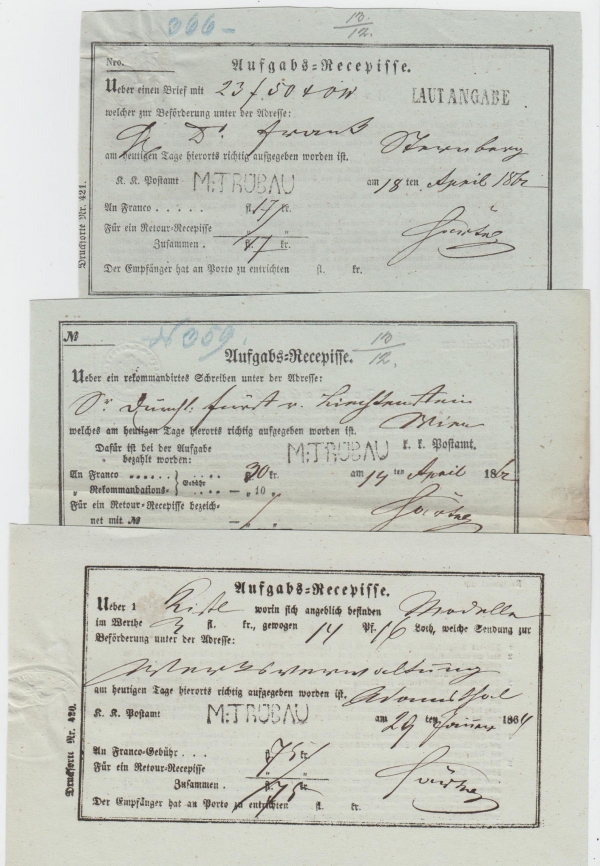 366-
13./12.
Nro.
Aufgabs-Recepisse.
Ueber einen Brief mit 23 f 50 x ow
LAUT ANGABE
welcher zur Beförderung unter der Adresse:
Dr. Frank Sternberg
am heutigen Tage hierorts richtig aufgegeben worden ist.
K. K. Postamt M:TRÜBAU am 18 ten April 1862
An Franco . . . . . fl. 17 kr.
Für ein Retour-Recepisse " "
Zusammen . fl. 17 kr.
Der Empfänger hat an Porto zu entrichten fl. kr.
Drucksorte Nr. 421.
№
N 359.
13/12.
Aufgabs-Recepisse.
Ueber ein rekommandirtes Schreiben unter der Adresse:
Sr Durchl. Fürst v. Liechtenstein
Wien
welches am heutigen Tage hierorts richtig aufgegeben worden ist.
Dafür ist bei der Aufgabe
bezahlt worden:
M:TRÜBAU k. k. Postamt.
An Franco . . . . . . Gebühr . . . . 30 kr. am 14 ten April 1862
„ Rekommandations- . . . . – 10 „
Für ein Retour-Recepisse bezeich-
net mit №
Aufgabs-Recepisse.
Ueber 1 Kistl worin sich angeblich befinden Modelle
im Werthe 3 fl. kr., gewogen 14 Pf. 16 Loth, welche Sendung zur
Beförderung unter der Adresse:
Werksverwaltung
am heutigen Tage hierorts richtig aufgegeben worden ist. Adamsthal
K. K. Postamt M:TRÜBAU am 29 ten Jänner 1864
An Franco-Gebühr . . . fl. 75 kr.
Für ein Retour-Recepisse " "
Zusammen . fl. 75 kr.
Der Empfänger hat an Porto zu entrichten fl. kr.
Drucksorte Nr. 420.